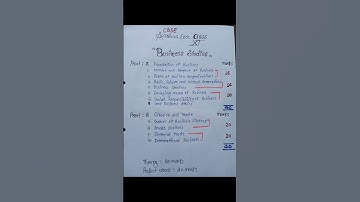 CBSE
Syllabus for Class
XI
"Business Studies"
Part : A Foundation of Business Marks
1. Nature and Purpose of Business
2. Forms of Business Organisations 16
3. Public, Private and Global Enterprises
4. Business Services 14
5. Emerging modes of Business
6. Social Responsibility of Business 10
and Business Ethics
40
Part : B Finance and Trade Marks
7. Sources of Business Finance
8. Small Business 20
9. Internal Trade
10. International Business 20
40
Theory : 80 marks
Project work : 20 marks